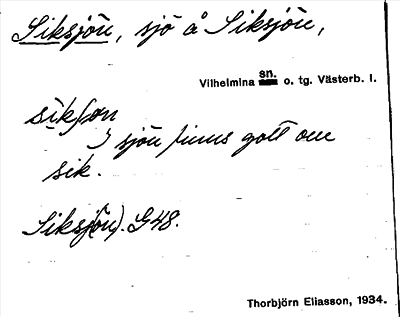 Siksjön, sjö å Siksjön,
Vilhelmina sn. o. tg. Västerb. l.
I sjön finns gott om
sik.
Siksjö(n). G48.
Thorbjörn Eliasson, 1934.